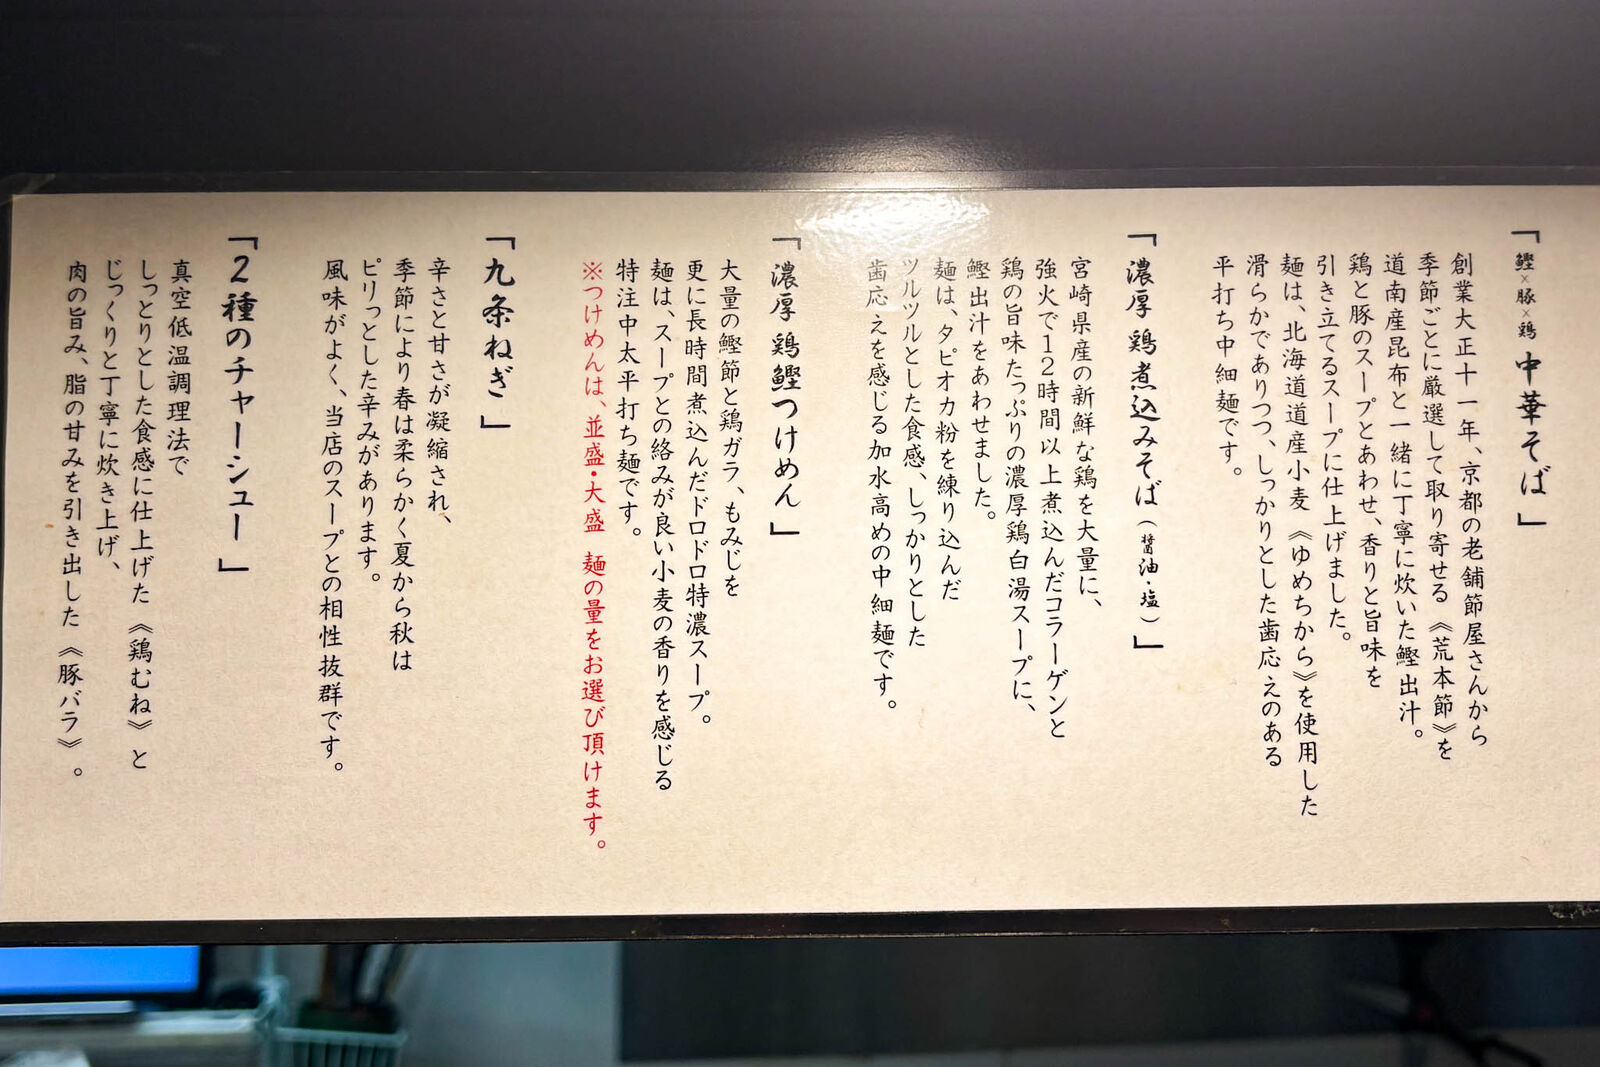 「鰹×豚×鶏 中華そば」
創業大正十一年、京都の老舗節屋さんから
季節ごとに厳選して取り寄せる《荒本節》を
道南産昆布と一緒に丁寧に炊いた鰹出汁。
鶏と豚のスープとあわせ、香りと旨味を
引き立てるスープに仕上げました。
麺は、北海道道産小麦《ゆめちから》を使用した
滑らかでありつつ、しっかりとした歯応えのある
平打ち中細麺です。
「濃厚 鶏煮込みそば（醤油・塩）」
宮崎県産の新鮮な鶏を大量に、
強火で12時間以上煮込んだコラーゲンと
鶏の旨味たっぷりの濃厚鶏白湯スープに、
鰹出汁をあわせました。
麺は、タピオカ粉を練り込んだ
ツルツルとした食感、しっかりとした
歯応えを感じる加水高めの中細麺です。
「濃厚 鶏鰹つけめん」
大量の鰹節と鶏ガラ、もみじを
更に長時間煮込んだドロドロ特濃スープ。
麺は、スープとの絡みが良い小麦の香りを感じる
特注中太平打ち麺です。
※つけめんは、並盛・大盛 麺の量をお選び頂けます。
「九条ねぎ」
辛さと甘さが凝縮され、
季節により春は柔らかく夏から秋は
ピリっとした辛みがあります。
風味がよく、当店のスープとの相性抜群です。
「2種のチャーシュー」
真空低温調理法で
しっとりとした食感に仕上げた《鶏むね》と
じっくりと丁寧に炊き上げ、
肉の旨み、脂の甘みを引き出した《豚バラ》。